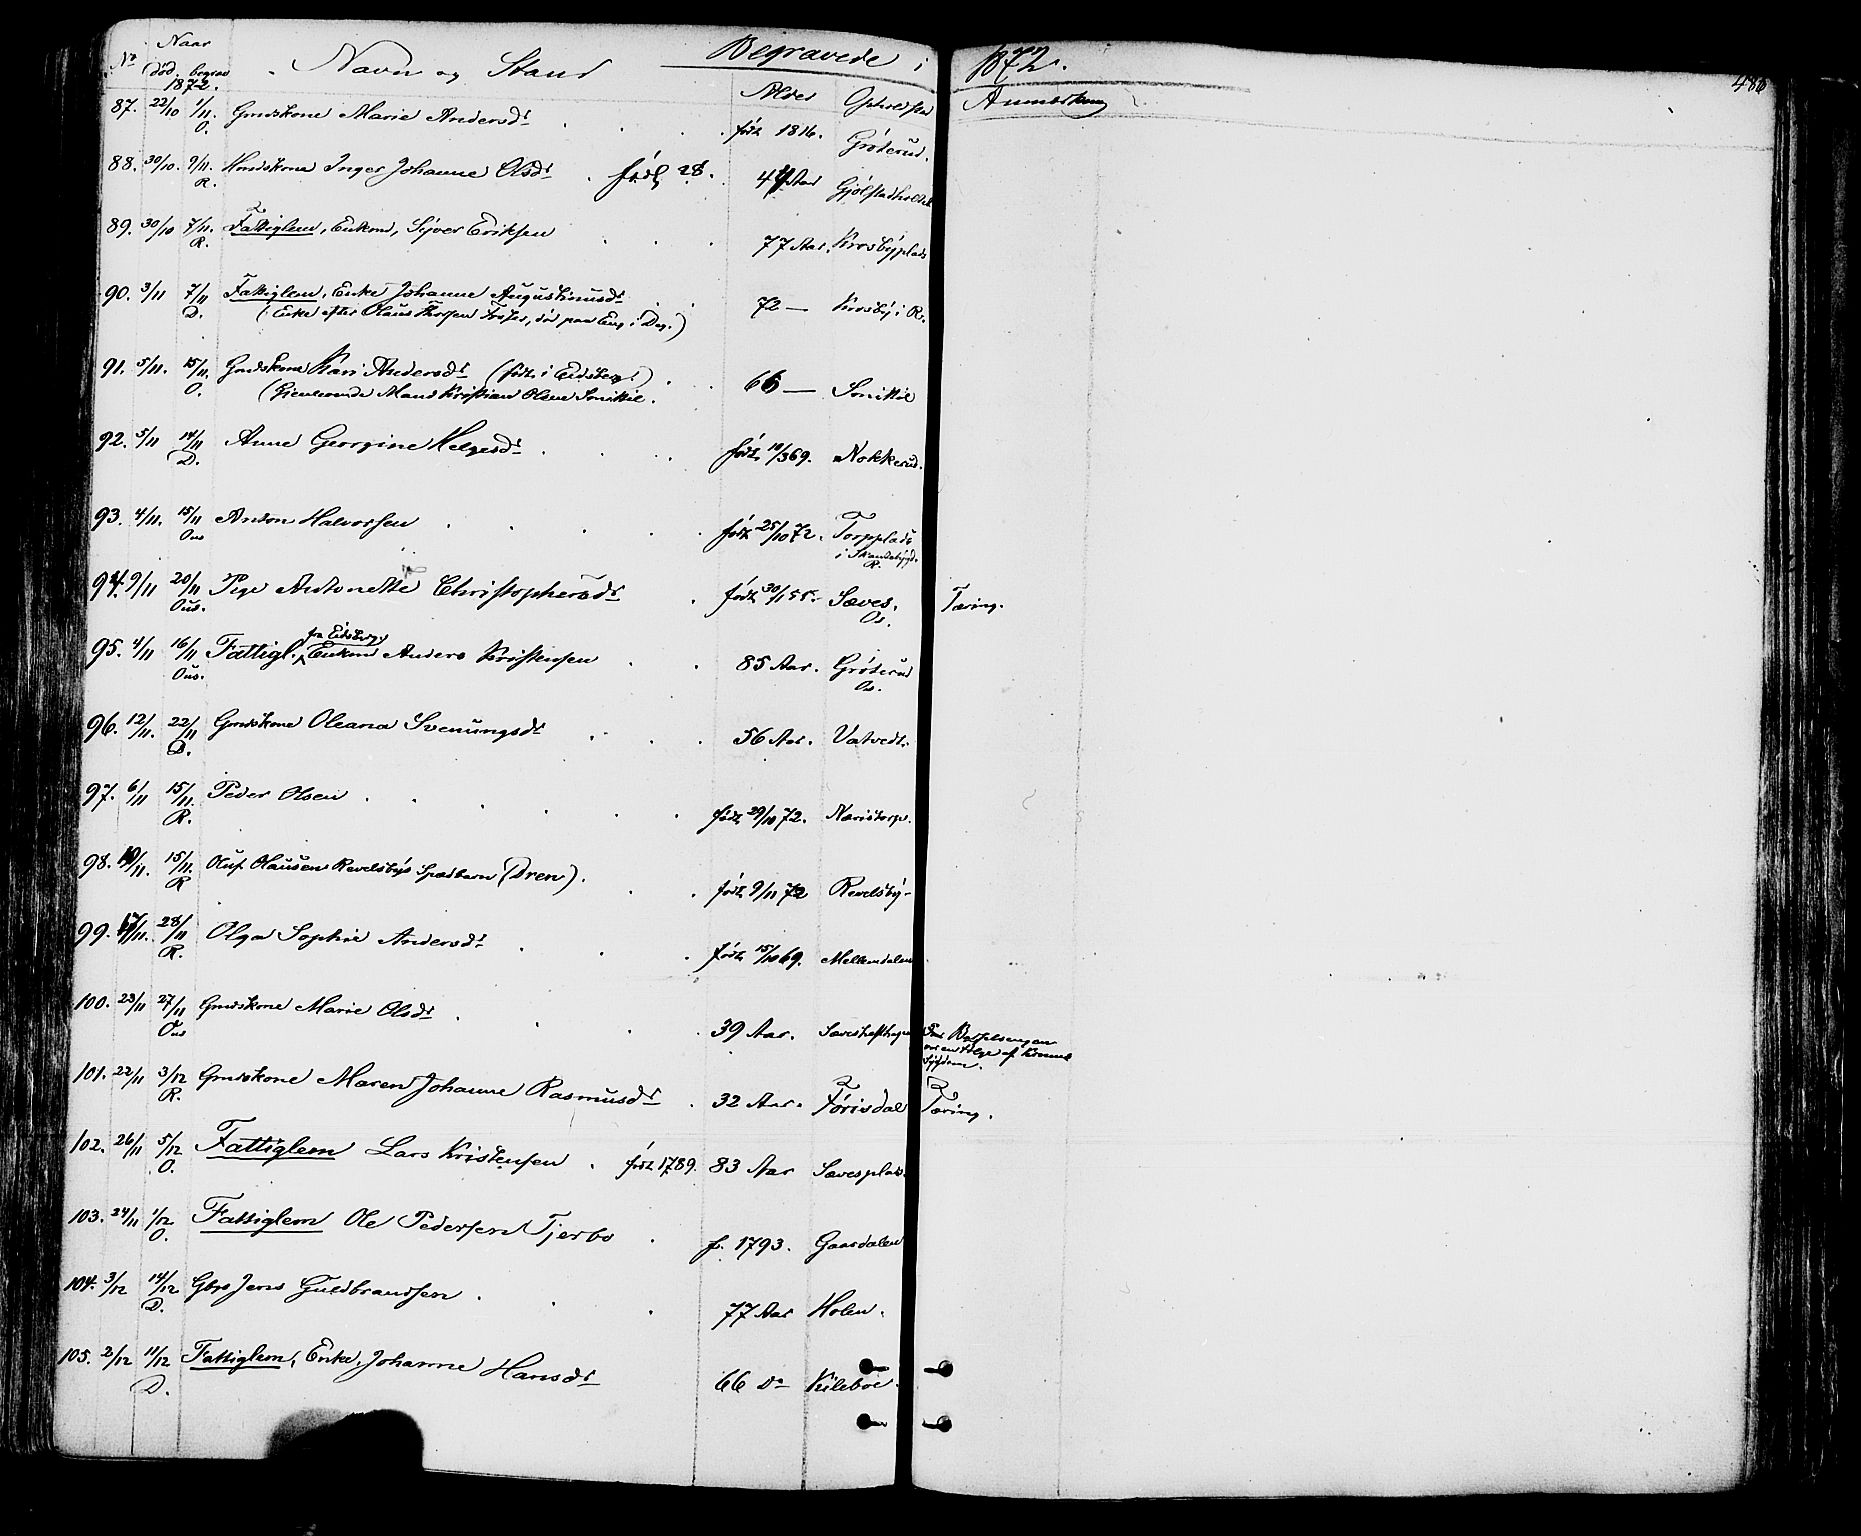 Begravede i 1872.
486
No Naar død. begrav. Navn og Stand Alder Opholdsted Anmerkning
1872.
87. 22/10 1/11. O. Gmdskone Marie Andersdr født 1816. Grøterud.
88. 30/10. 9/11. R. Hmdskone Inger Johanne Olsdr. født 28. 44 Aar Gjølstadholdet
89. 30/10 7/11. R. Fattiglem, Enkem, Syver Eriksen 77 Aar. Krosbyplads
90. 3/11 7/11 D. Fattiglem, Enke Johanne Augustinusdr 72 — Krosby i R.
(Enke efter Olaus Thorsen Fosser, død paa Eng i Deg.)
91. 5/11. 15/11. O. Gmdskone Kari Andersdr (født i Eidsberg) 66 — Sonikil
(Gjenlevende Mand Kristian Olsen Sonikil.
92. 5/11 14/11 D. Anne Georgine Helgesdr født 10/3 69. Nokkerud.
93. 4/11. 15/11 Ous Anton Halvorsen født 25/10 72. Torpplads
i Skandsbygd. R.
94. 9/11 20/11 Ous. Pige Antonette Christophersdr født 30/1 55. Sæves. Os. Tæring.
95. 4/11 16/11 Ous. Fattigl. fra Eidsberg, Enkem Anders Kristensen 85 Aar. Grøterud Os.
96. 12/11. 22/11 D. Gmdskone Oleana Svenungsdr 56 Aar. Vatvedt.
97. 6/11 15/11. R. Peder Olsen født 29/10 72. Næristorp.
98. 10/11. 15/11. R Oluf Olausen Revelsbys Spædbarn (Dreng). født 9/11 72 Revelsby
99. 17/11. 28/11 R. Olga Sophie Andersdr født 15/10 69. Mellemdalen
100. 23/11 27/11 Ous Gmdskone Marie Olsdr. 39 Aar. Sæves
Barselsengen
en Følge af
101. 22/11 3/12 R. Gmdskone Maren Johanne Rasmusdr. 32 Aar. Tørisdal Tæring.
102. 26/11 5/12 O. Fattiglem Lars Kristensen. født 1789. 83 Aar Sævesplads.
103. 24/11 1/12 O. Fattiglem Ole Pedersen Tjerbo. f. 1793. Gaasdalen
104. 3/12 14/12 D. Gbr Jens Guldbrandsen. 77 Aar Holen.
105. 2/12 11/12 D. Fattiglem, Enke, Johanne Hansdr 66 Do Kileboe.